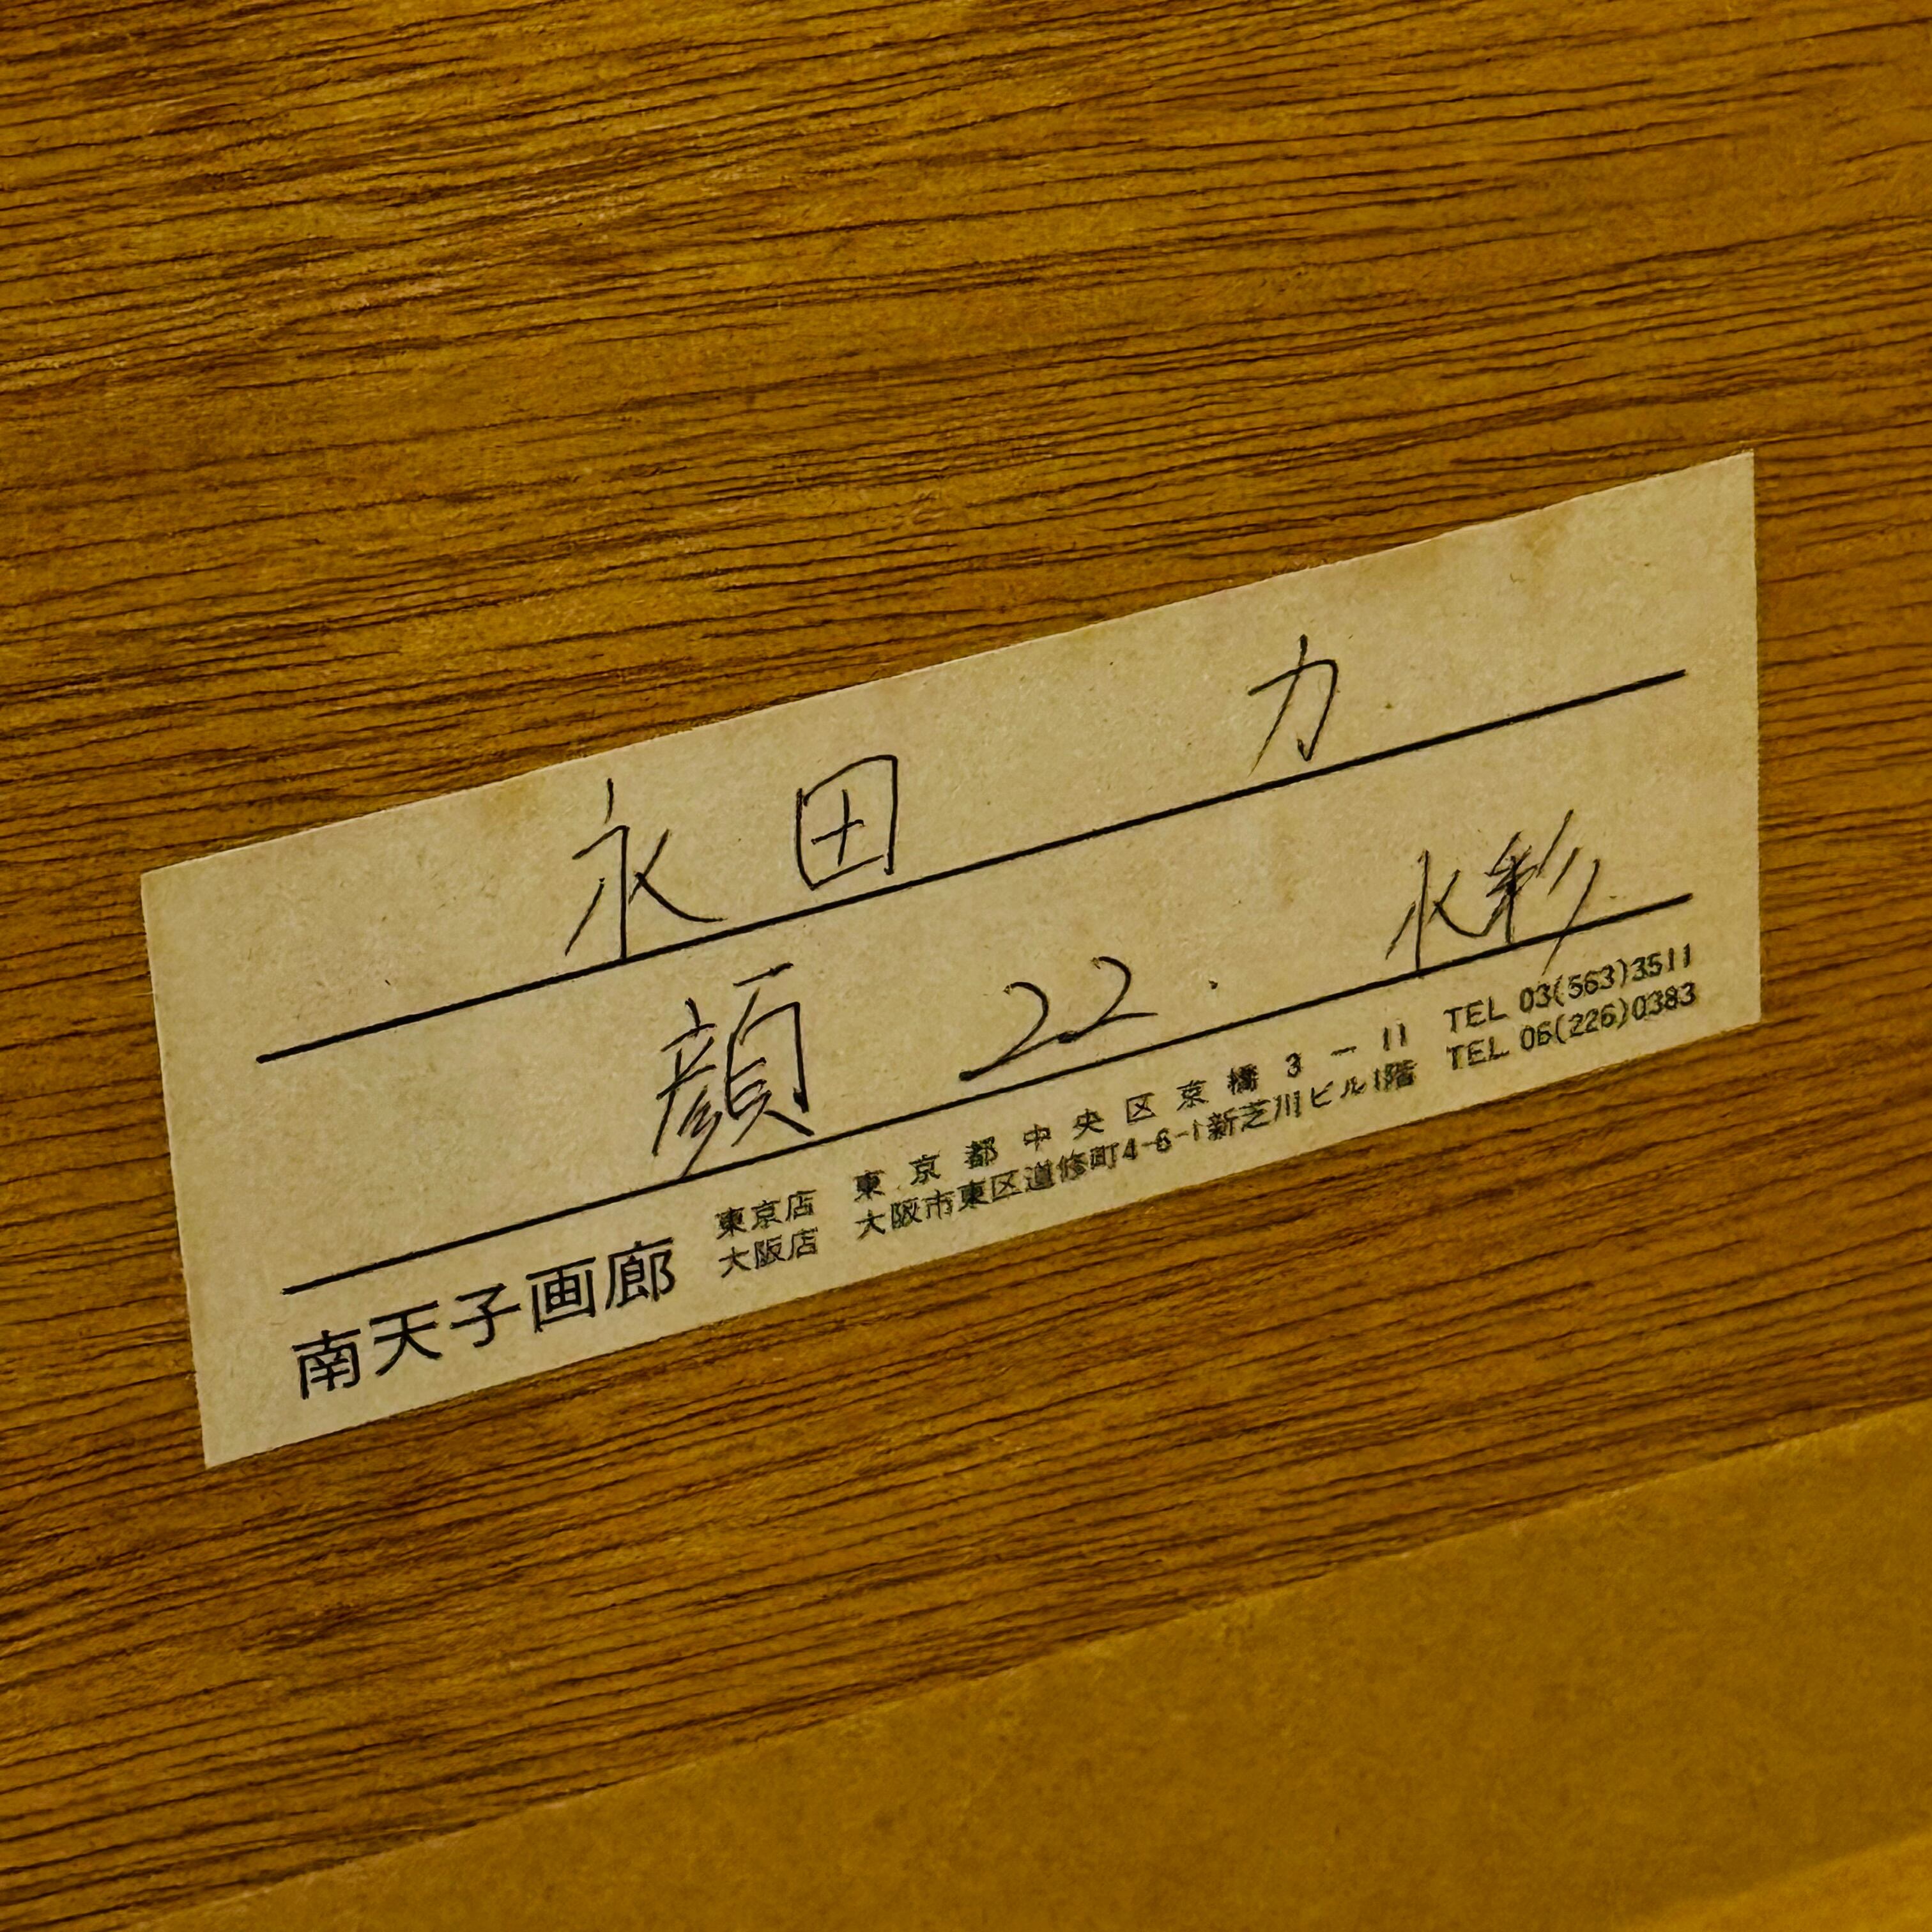 永田 力
顔 22. 水彩
南天子画廊
東京店 東京都中央区京橋3-11 TEL 03(563)3511
大阪店 大阪市東区道修町4-6-1新芝川ビル1階 TEL 06(226)0383